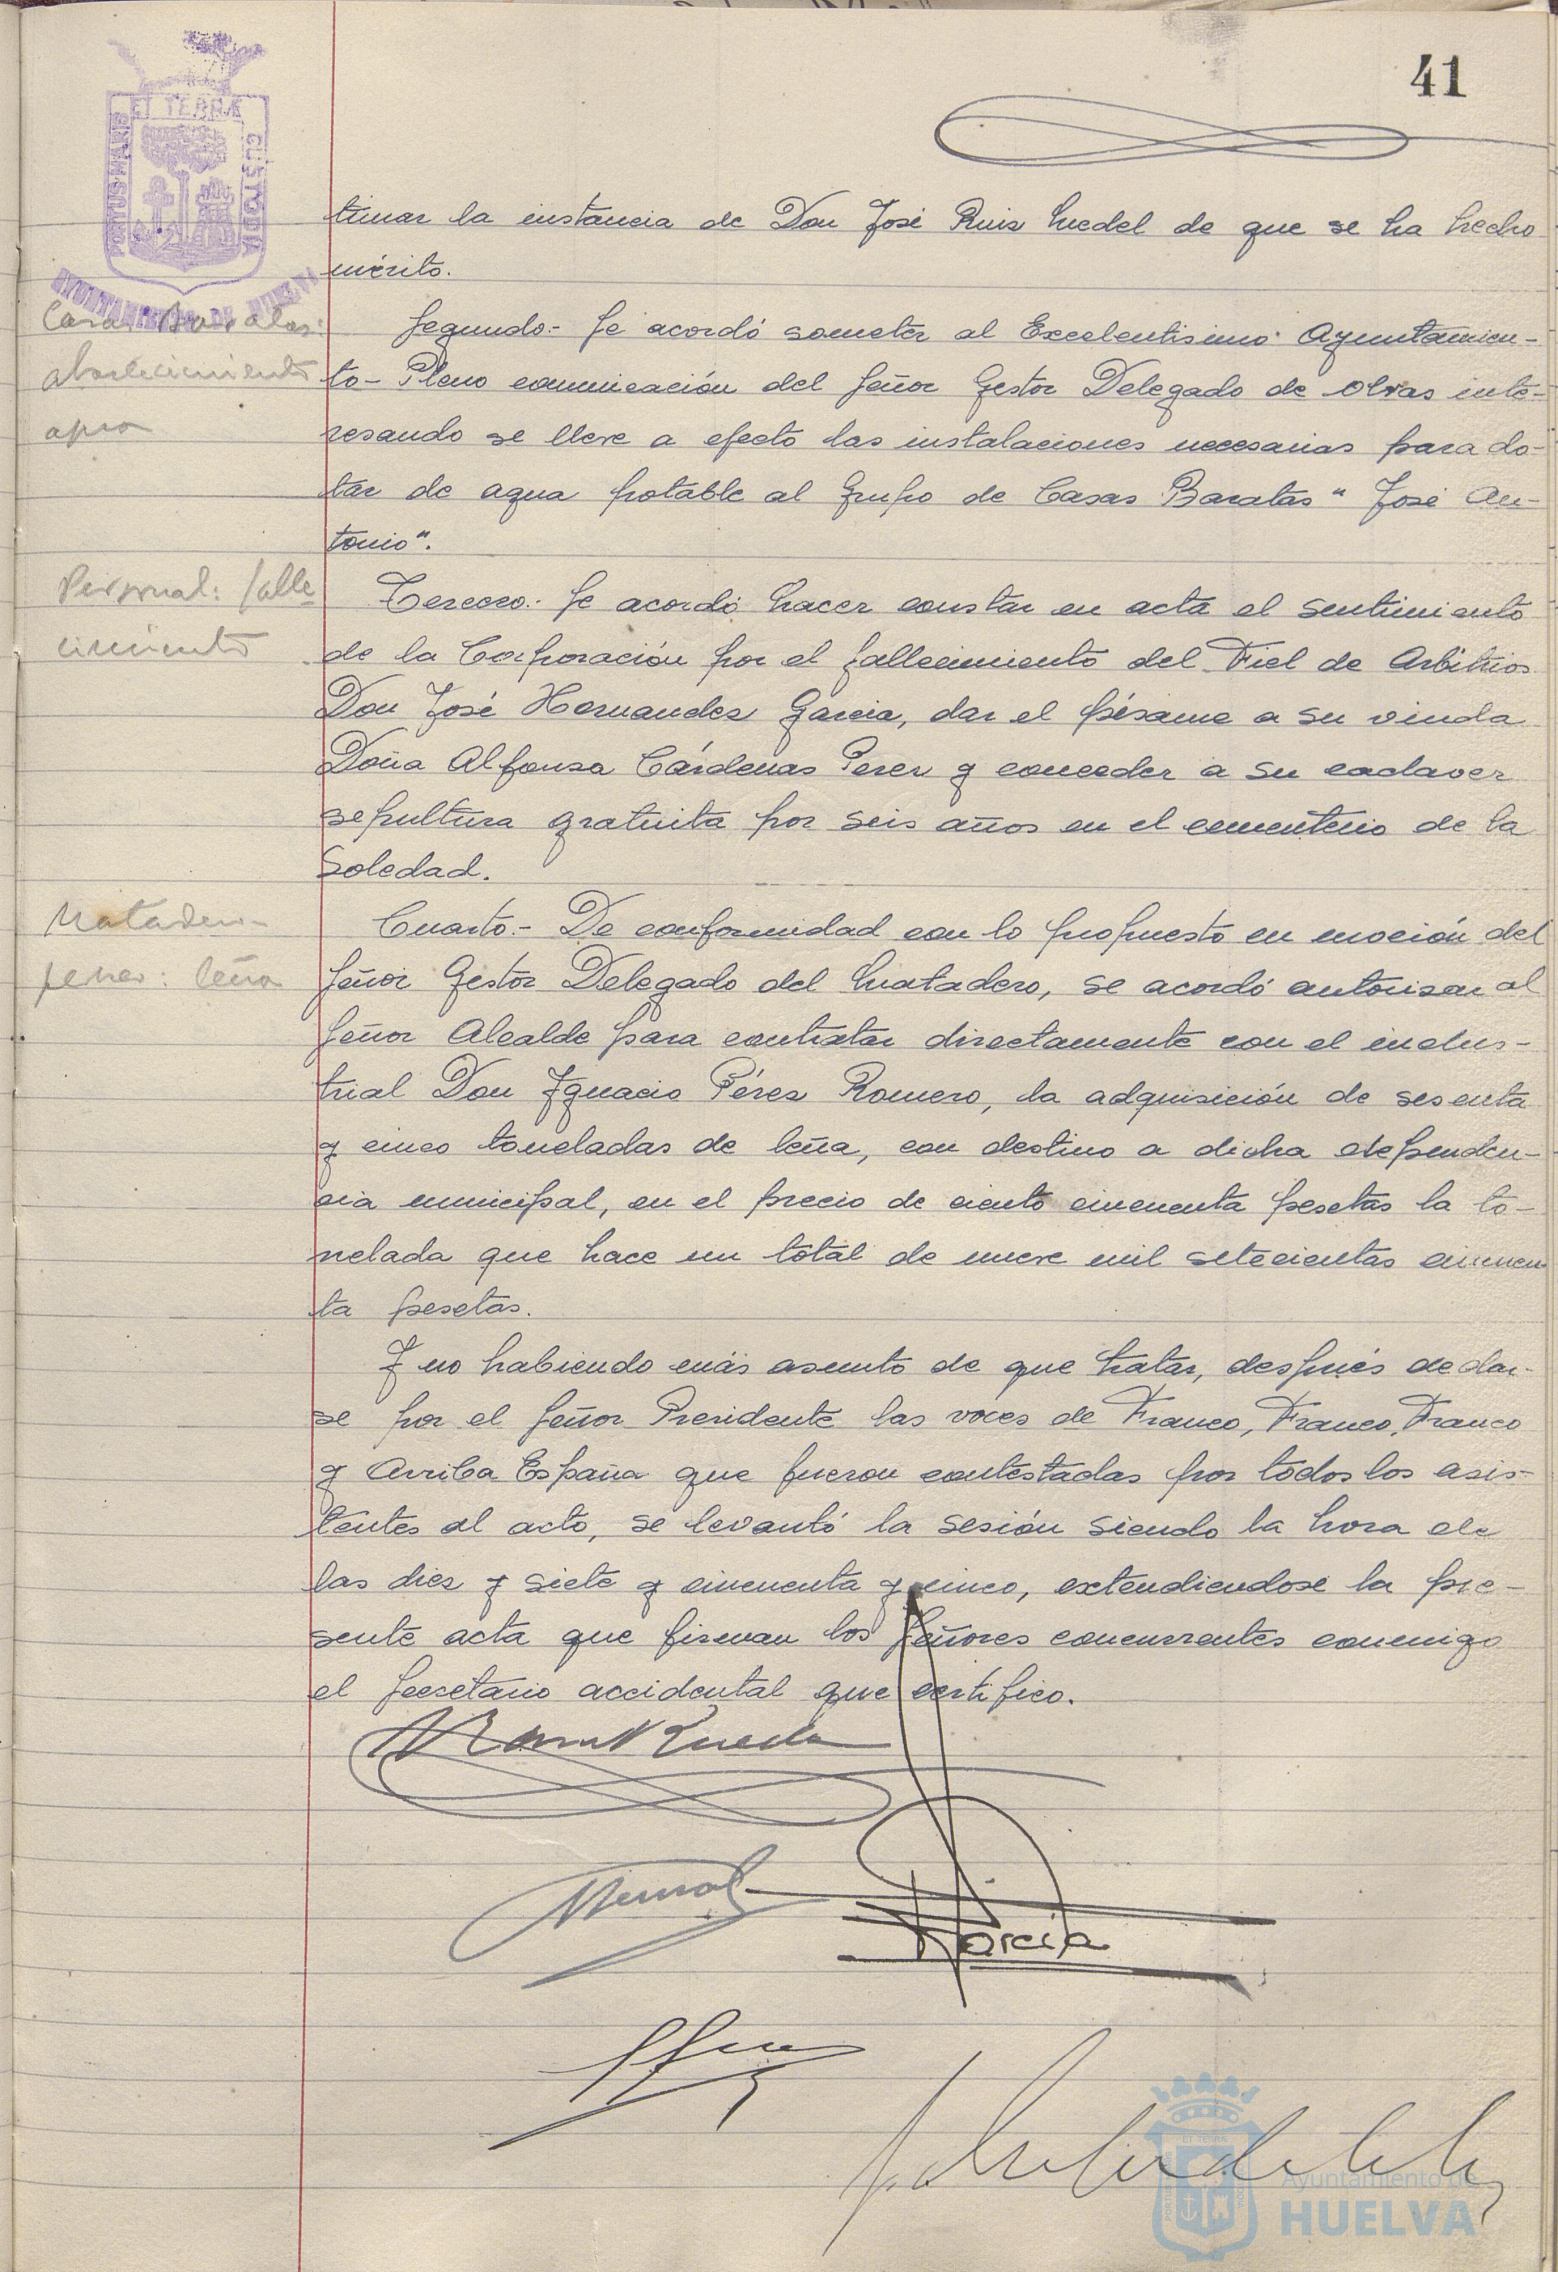 41
ET TERRÆ
PORTUS MARIS
CUSTODIA
AYUNTAMIENTO DE HUELVA
timar la instancia de Don José Ruiz Muedel de que se ha hecho
mérito.
Casas Baratas:
abastecimiento
agua
Segundo.- Se acordó someter al Excelentisimo Ayuntamien-
to-Pleno comunicación del Señor Gestor Delegado de obras inte-
resando se lleve a efecto las instalaciones necesarias para do-
tar de agua potable al Grupo de Casas Baratas "José An-
tonio".
Personal: falle
cimiento
Tercero.- Se acordó hacer constar en acta el sentimiento
de la Corporación por el fallecimiento del Fiel de Arbitrios
Don José Hernandez Garcia, dar el pésame a su viuda
Doña Alfonsa Cárdenas Perez y conceder a su cadaver
sepultura gratuita por seis años en el cementerio de la
Soledad.
Matadero-
leña
Cuarto.- De conformidad con lo propuesto en moción del
Señor Gestor Delegado del Matadero, se acordó autorizar al
Señor Alcalde para contratar directamente con el indus-
trial Don Ignacio Pérez Romero, la adquisición de sesenta
y cinco toneladas de leña, con destino a dicha dependen-
cia municipal, en el precio de ciento cincuenta pesetas la to-
nelada que hace un total de nueve mil setecientas cincuen
ta pesetas.
Y no habiendo más asunto de que tratar, después de dar-
se por el Señor Presidente las voces de Franco, Franco, Franco
y Arriba España que fueron contestadas por todos los asis-
tentes al acto, se levantó la sesión siendo la hora de
las diez y siete y cincuenta y cinco, extendiendose la pre-
sente acta que firman los Señores concurrentes conmigo
el Secretario accidental que certifico.
Rueda
Bernal
García
Ayuntamiento de
HUELVA